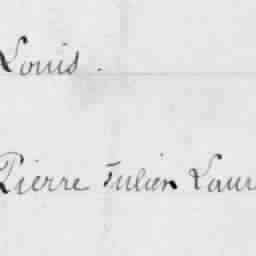 Louis.
Pierre Julien Laur